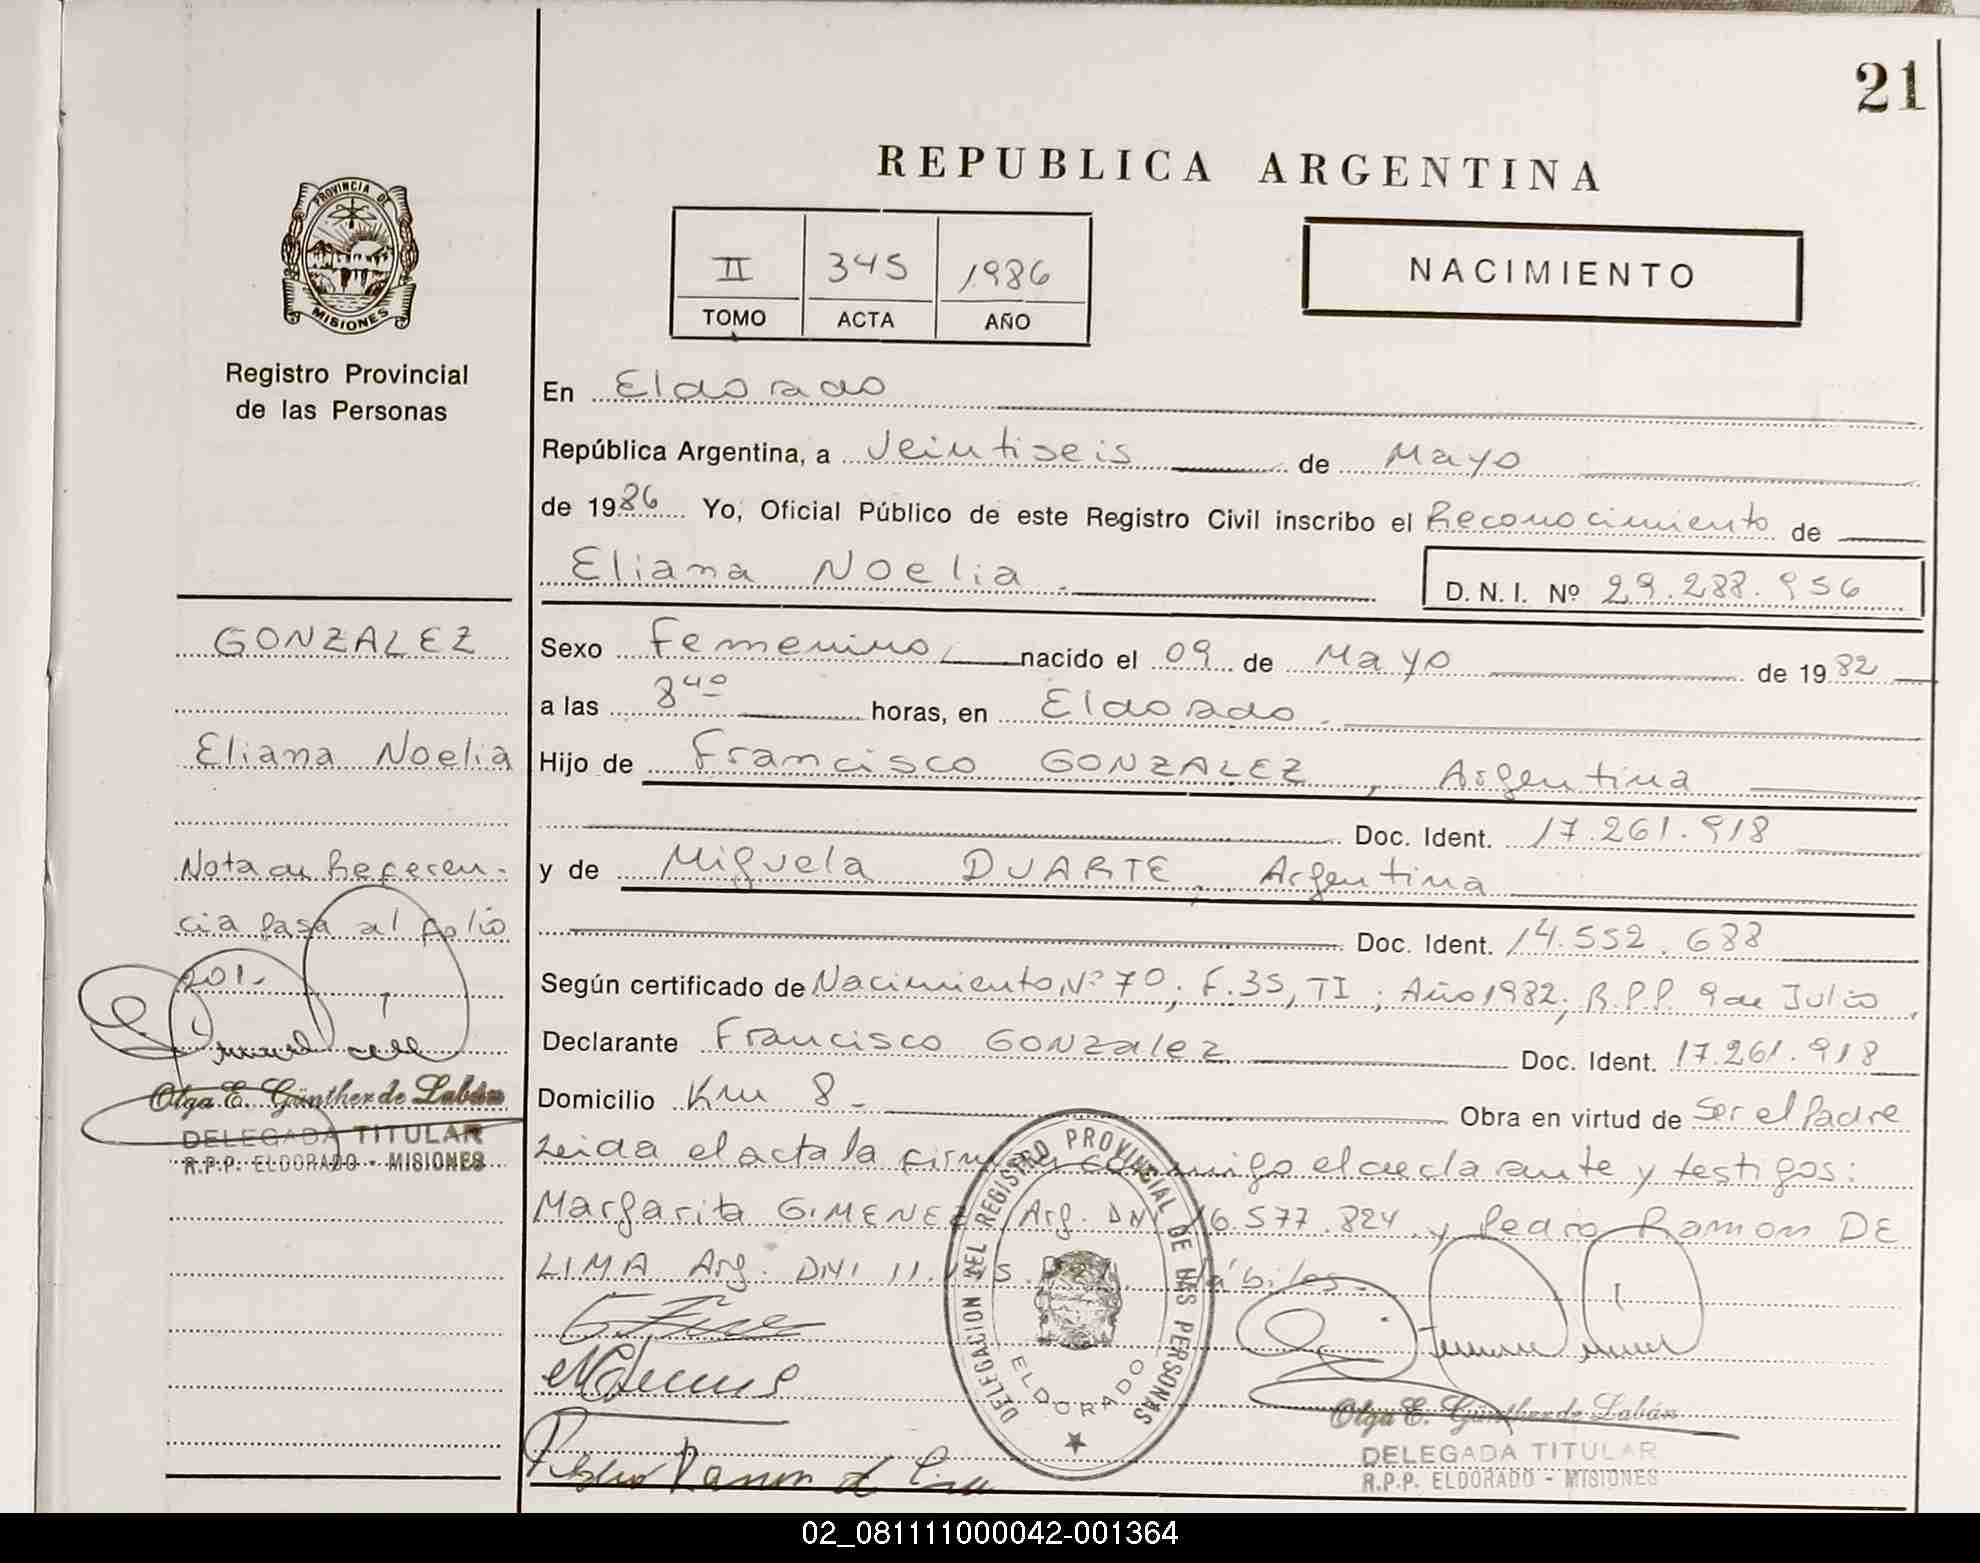 21
REPUBLICA ARGENTINA
PROVINCIA DE
MISIONES
II 345 1986
TOMO ACTA AÑO
NACIMIENTO
Registro Provincial
de las Personas
En Eldorado
República Argentina, a Veintiseis de Mayo
de 1986 Yo, Oficial Público de este Registro Civil inscribo el Reconocimiento de
Eliana Noelia. D. N. I. Nº 29.288.956
GONZALEZ
Eliana Noelia
Nota de Referen-
cia pasa al folio
201.
Olga E. Günther de Labán
DELEGADA TITULAR
R.P.P. ELDORADO - MISIONES
Sexo Femenino, nacido el 09 de Mayo de 1982
a las 8 40 horas, en Eldorado.
Hijo de Francisco GONZALEZ, Argentina
Doc. Ident. 17.261.918
y de Miguela DUARTE, Argentina
Doc. Ident. 14.552.688
Según certificado de Nacimiento, Nº 70, F.35, TI; Año 1982; R.P.P. 9 de Julio,
Declarante Francisco GONZalez Doc. Ident. 17.261.918
Domicilio Km 8- Obra en virtud de Ser el Padre
Leida el acta la firman conmigo el declarante y testigos:
Margarita GIMENEZ, Arg. DNI 16.577.824 y Pedro Ramon DE
LIMA Arg. DNI 11. hábiles.
DELEGACION DEL REGISTRO PROVINCIAL DE LAS PERSONAS
ELDORADO
Ramon de Lima
Olga E. Günther de Labán
DELEGADA TITULAR
R.P.P. ELDORADO - MISIONES
02_081111000042-001364